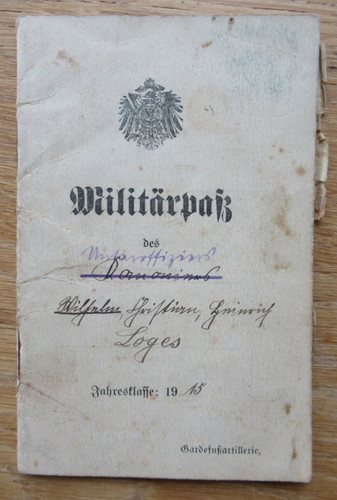 Militärpaß
des
Unteroffiziers
Kanoniers
Wilhelm Christian, Heinrich
Loges
Jahresklasse: 1915
Gardefußartillerie.